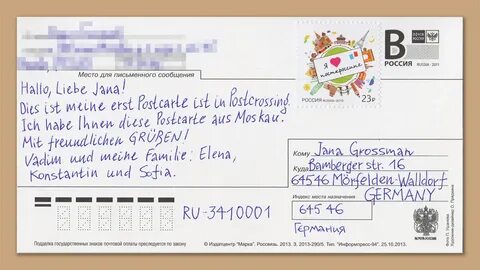 Место для письменного сообщения
Hallo, Liebe Jana!
Dies ist meine erst Postcarte ist in Postcrossing.
Ich habe Ihnen diese Postcarte aus Moskau.
Mit freundlichen GRÜßEN!
Vadim und meine Familie: Elena,
Konstantin und Sofia.
Я
посткроссинг
РОССИЯ
23р
B
РОССИЯ
RUSSIA · 2013
Кому Jana Grossman
Куда Bamberger str. 16
64546 Mörfelden-Walldorf
GERMANY
Индекс места назначения
645 46
Германия
RU-3410001
Подделка государственных знаков почтовой оплаты преследуется по закону
© Издатцентр "Марка", Россвязь, 2013. З. 2013-290/5. Тип. "Информпресс-94". 25.10.2013.
ПОЧТА РОССИИ